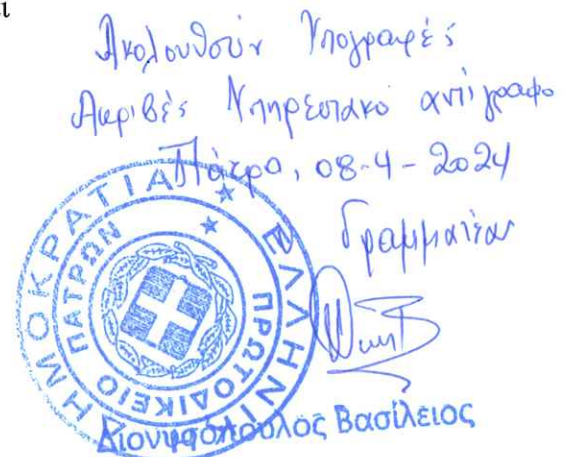 αι
Ακολουθούν Υπογραφές
Ακριβές Υπηρεσιακό αντίγραφο
Πάτρα, 08-4-2024
Γραμματέας
ΕΛΛΗΝΙΚΗ ΔΗΜΟΚΡΑΤΙΑ
ΠΡΩΤΟΔΙΚΕΙΟ ΠΑΤΡΩΝ
Διονυσόπουλος Βασίλειος